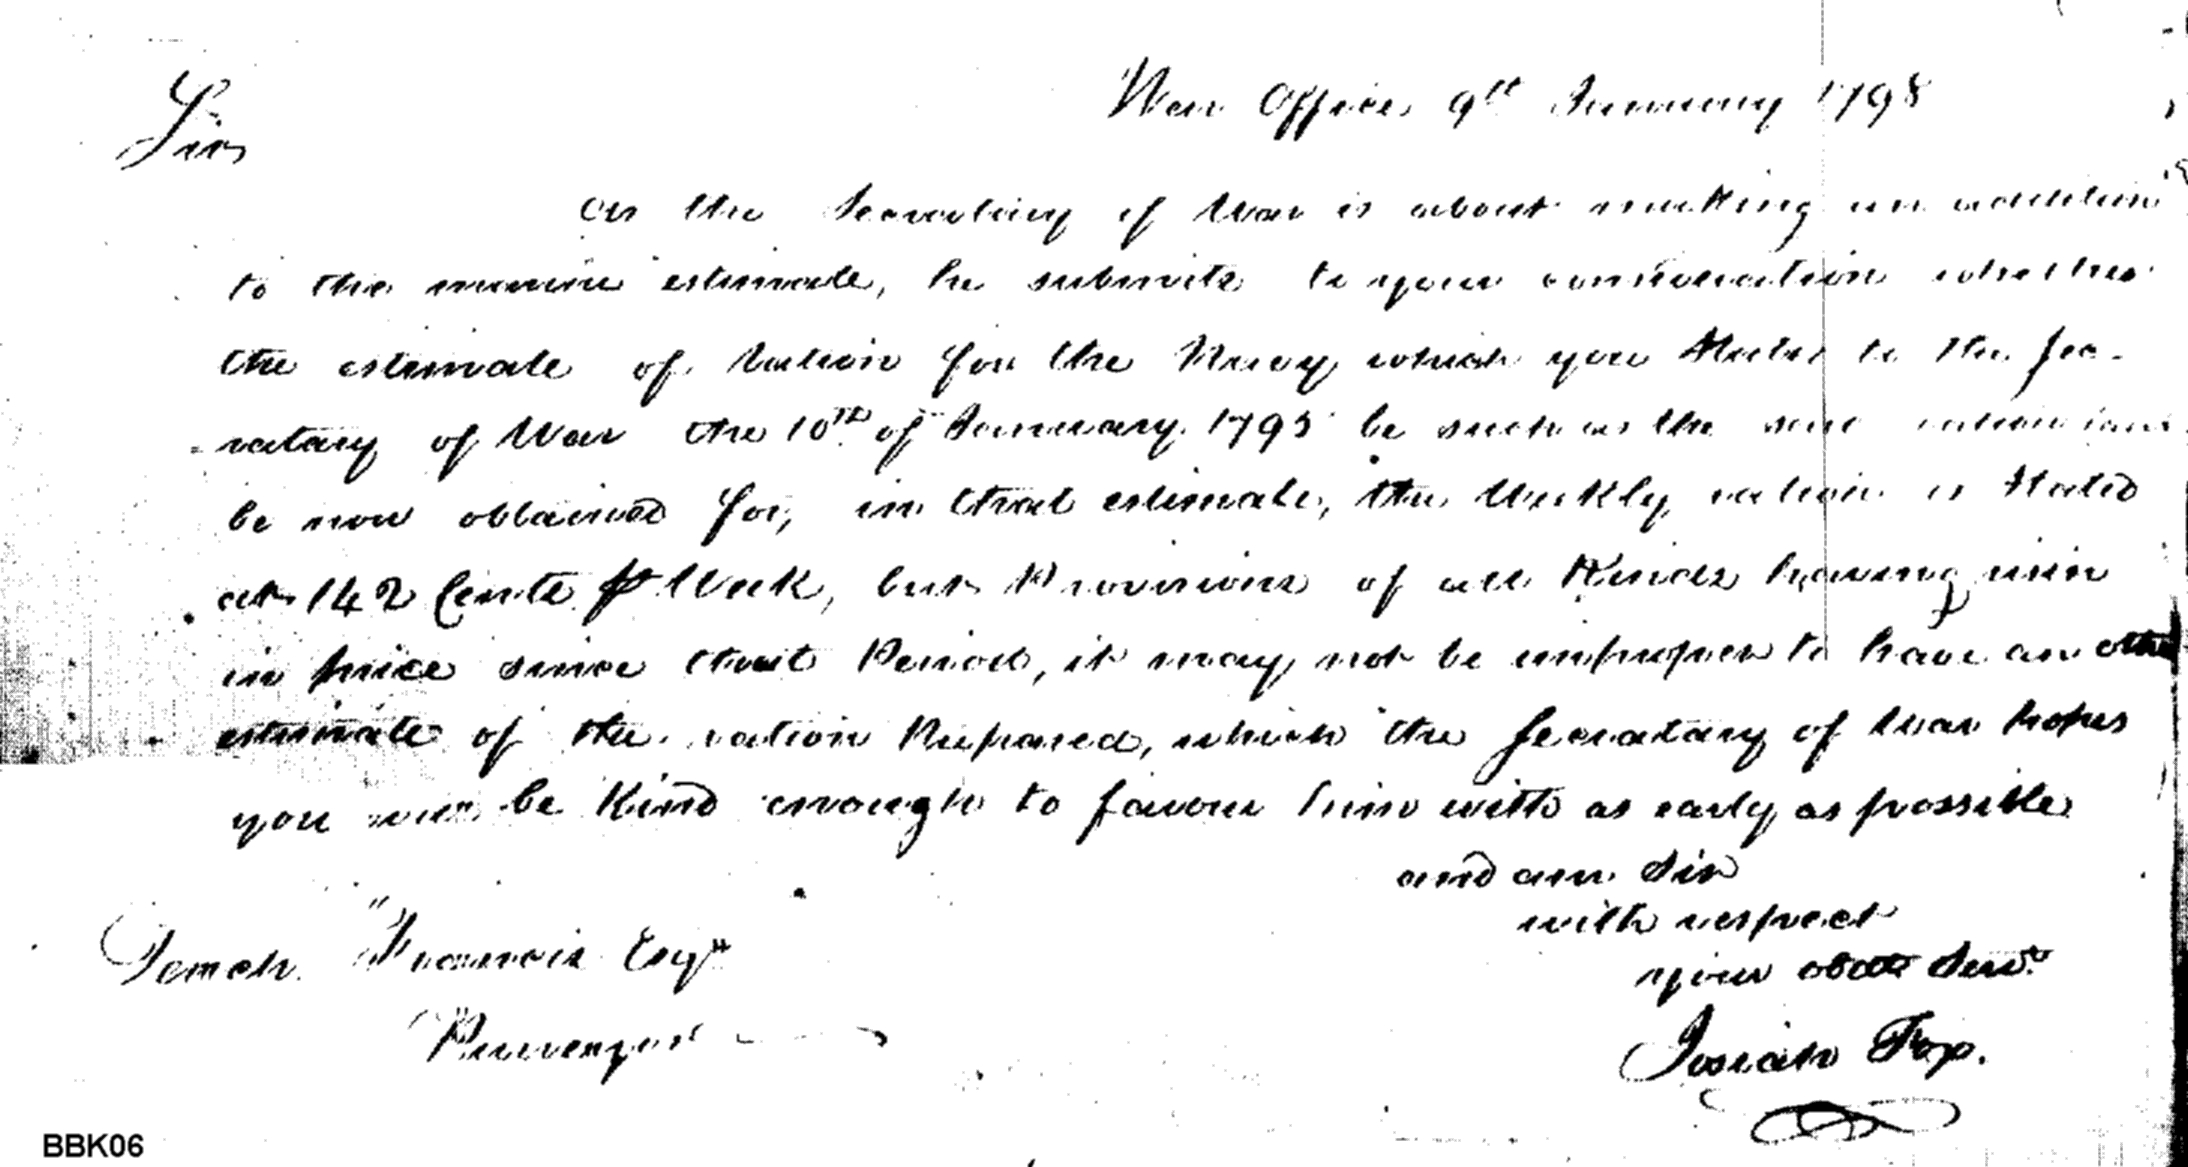 War Office 9th January 1798
Sir
As the Secretary of War is about making an addition
to the marine estimate, he submits to your consideration whether
the estimate of ration for the Navy which you stated to the Sec-
-retary of War the 10th of January 1795 be such as the said ration can
be now obtained for, in that estimate, the Weekly ration is stated
at 142 Cents p Week, but Provisions of all Kinds having risen
in price since that Period, it may not be improper to have another
estimate of the ration Prepared, which the Secretary of War hopes
you will be Kind enough to favour him with as early as possible
and am Sir
with respect
your obdt Servt
Josiah Fox.
Tench Francis Esqr
Purveyor
BBK06